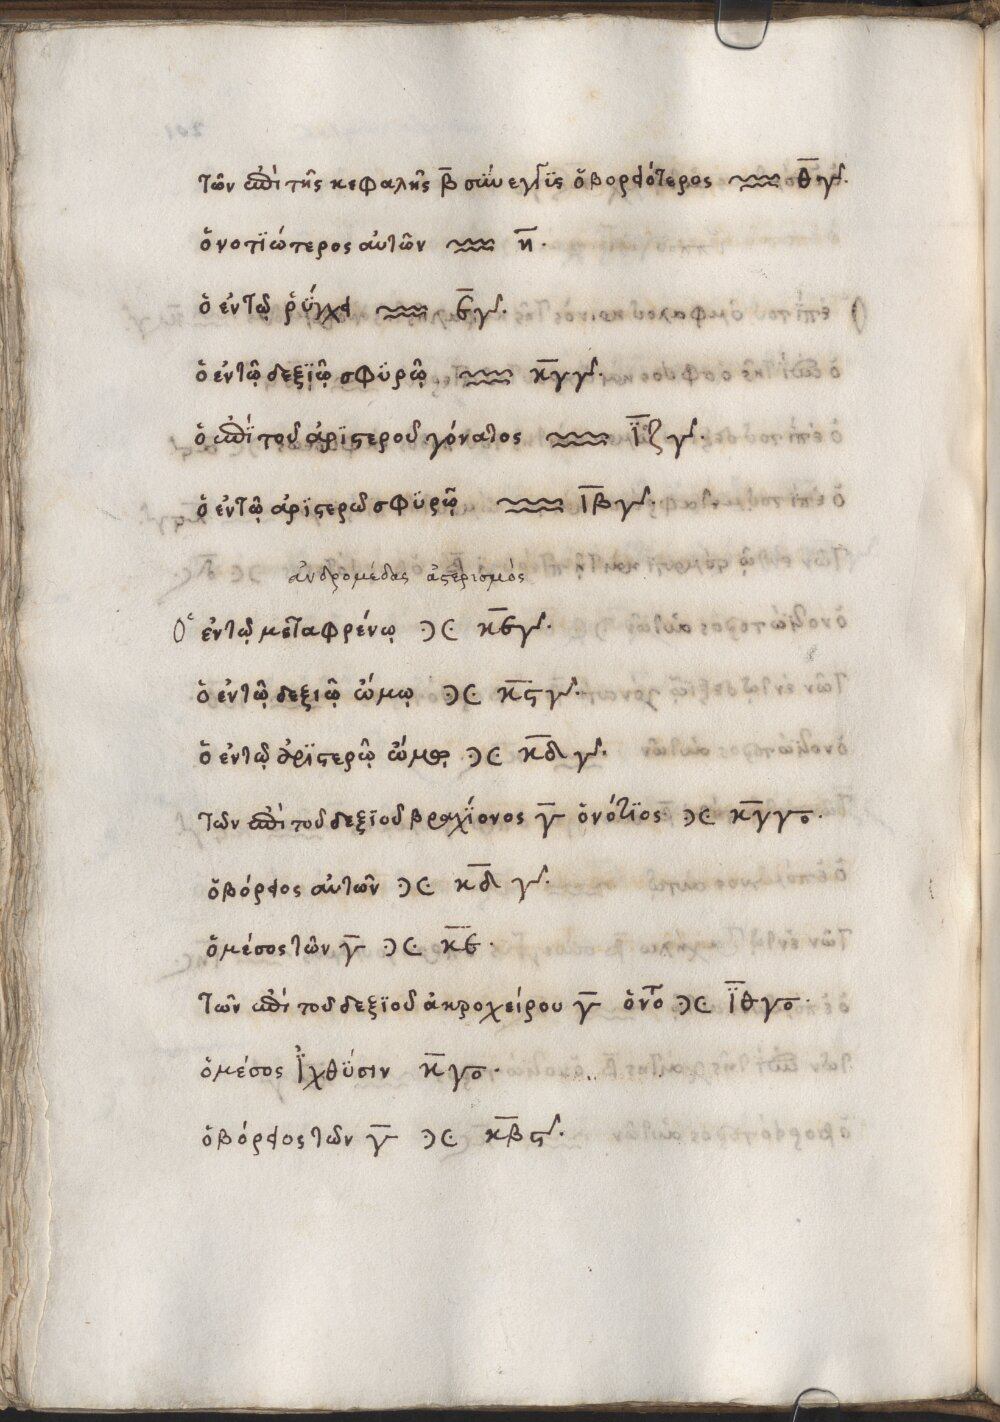 τῶν ἐπὶ τῆς κεφαλῆς β̅ σϋνεγγϋς ὁ βορϵιότερος ♒ θ̅ γʹ.
ὁ νοτϊώτερος αὐτῶν ♒ η̅.
ὁ ἐν τῷ ῥϋγχει ♒ ε̅ γʹ.
ὁ ἐν τῷ δεξϊῷ σφϋρῷ ♒ κ̅γ γʹ.
ὁ ἐπῒ τοῦ ἀρϊστεροῦ γόνατος ♒ ι̅ζ γʹ.
ὁ ἐν τῷ ἀρϊστερῶ σφϋρῷ ♒ ι̅β γʹ.
ἀνδρομέδας ἀστερισμός
Ὁ ἐν τῷ μεταφρένῳ ♓ κ̅ε γʹ.
ὁ ἐν τῷ δεξιῷ ὤμῳ ♓ κ̅ς γʹ.
ὁ ἐν τῷ ἀρϊστερῷ ὤμῳ ♓ κ̅δ γʹ.
τῶν ἐπὶ τοῦ δεξϊοῦ βραχϊονος γ̅ ὁ νότϊος ♓ κ̅γ γο.
ὁ βόρειος αὐτῶν ♓ κ̅δ γʹ.
ὁ μέσος τῶν γ̅ ♓ κ̅ε.
τῶν ἐπὶ τοῦ δεξϊοῦ ἀκροχείρου γ̅ ὁ νοτ ♓ ι̅θ γο.
ὁ μέσος ἰχθϋσιν κ̅ γο.
ὁ βόρειος τῶν γ̅ ♓ κ̅β ςʹ.